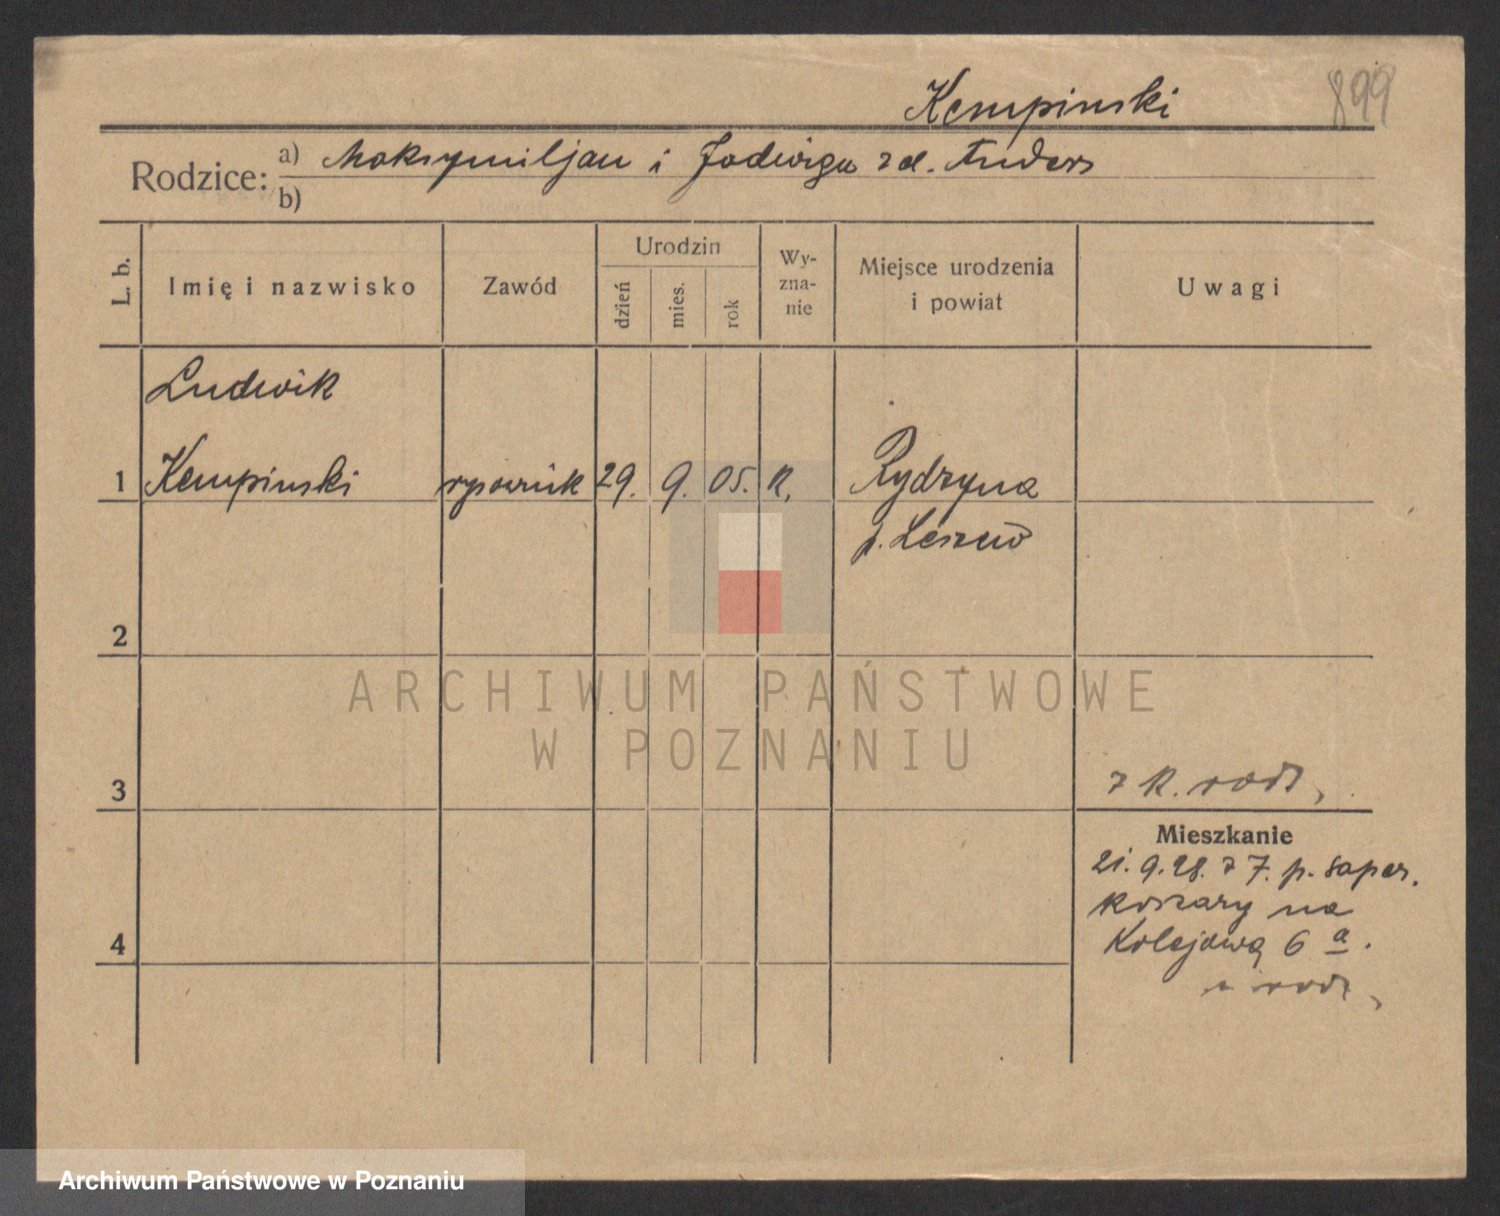 Kempinski 899
Rodzice: a) Maksymiljan i Jadwiga zd. Anders
b)
L. b. Imię i nazwisko Zawód Urodzin dzień mies. rok Wy-zna-nie Miejsce urodzenia i powiat Uwagi
Ludwik
1 Kempinski rysownik 29. 9. 05. R. Rydzyna
p. Leszno
2
ARCHIWUM PAŃSTWOWE
W POZNANIU
3 z k. rodz.
Mieszkanie
21. 9. 28. z 7. p. saper.
koszary na
4 Kolejową 6 a.
rodz.
Archiwum Państwowe w Poznaniu